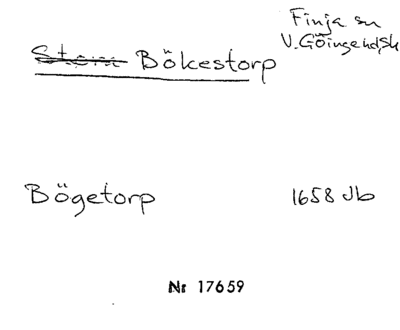 Finja sn
V. Göinge hd, Sk
Bökestorp
Bögetorp 1658 Jb
Nr 17659